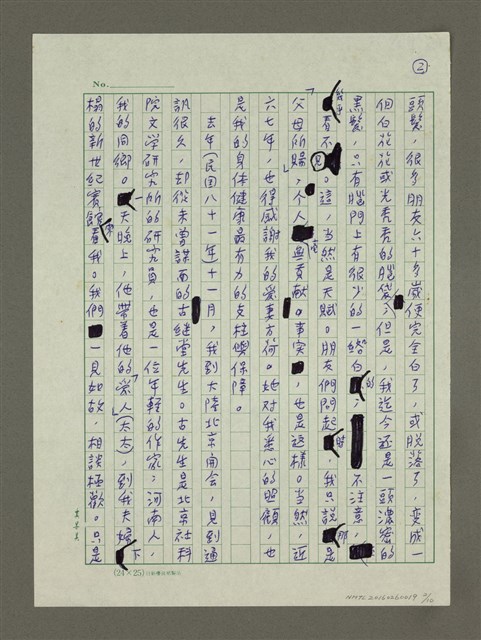 ②
No.
頭髮,很多朋友六十多歲便完全白了,或脫落了,變成一
個白花花或光秃秃的腦袋;但是,我迄今還是一頭濃密的
黑髮,只有腦門上有很少的一綹白的,不注意,
幾乎看不見。這,當然是天賦。朋友們問起時,我只說那是
「父母所賜」,個人毫無貢獻。事實,也是這樣。當然,近
六七年,也得感謝我的愛妻方荷。她對我悉心的照顧,也
是我的身体健康最有力的支柱與保障。
去年(民国八十一年)十一月,我到大陸北京開會,見到通
訊很久,却從未曾謀面的古継堂先生。古先生是北京社科
院文学研究所的研究員,也是一位年輕的作家;河南人,
我的同鄉。一天晚上,他帶着他的「愛人」(太太),到我夫婦下
榻的新世紀賓館來看我。我們一見如故,相談極歡。只是
(24×25)
NMTL20160260019
2/10